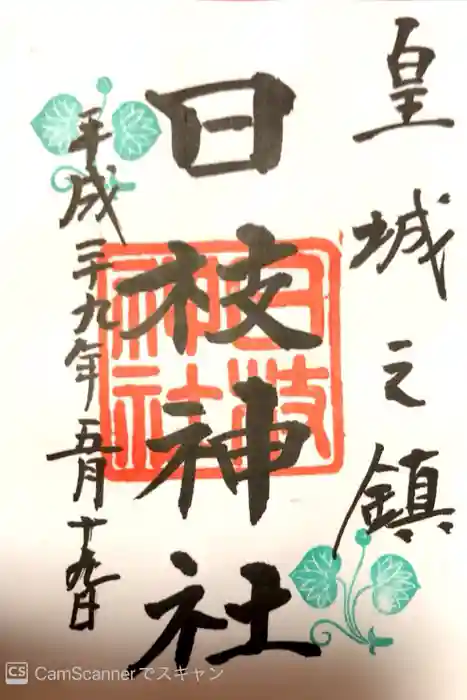 皇城之鎮
日枝神社
日枝神社
平成二十九年五月十九日
CS CamScannerでスキャン